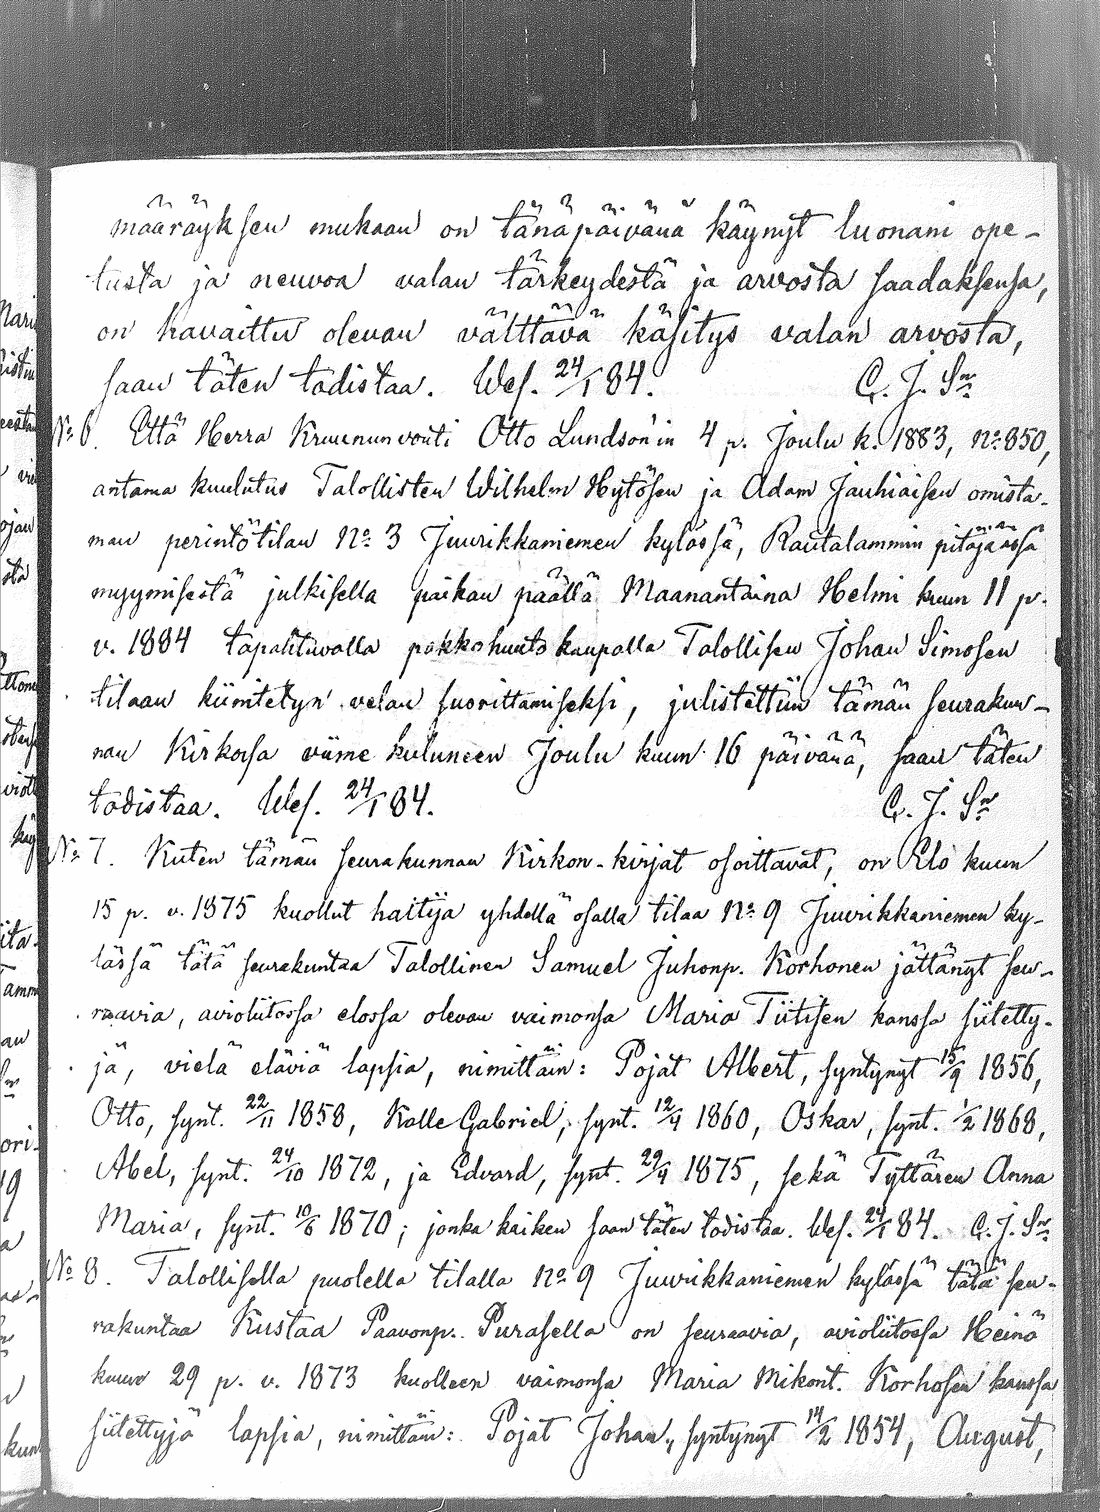 määräyksen mukaan on tänäpäivänä käynyt luonani ope-
tusta ja neuvoa valan tärkeydestä ja arvosta saadaksensa,
on havaittu olevan välttävä käsitys valan arvosta,
saan täten todistaa. Wes. 24/1 84. C. J. Sn
No 6. Että Herra Kruununvouti Otto Lundson'in 4 p. Joulu k. 1883, No 850,
antama kuulutus Talollisten Wilhelm Hytösen ja Adam Jauhiaisen omista-
man perintötilan No 3 Juurikkaniemen kylässä, Rautalammin pitäjäässä
myymisestä julkisella paikan päällä Maanantaina Helmi kuun 11 p.
v. 1884 tapahtuvalla pakkohuutokaupalla Talollisen Johan Simosen
tilaan kiinitetyn velan suorittamiseksi, julistettiin tämän seurakun-
nan Kirkossa viime kuluneen Joulu kuun 16 päivänä, saan täten
todistaa. Wes. 24/1 84. C. J. Sn
No 7. Kuten tämän seurakunnan Kirkon-kirjat osoittavat, on Elo kuun
15 p. v. 1875 kuollut haltija yhdellä osalla tilaa No 9 Juurikkaniemen ky-
lässä tätä seurakuntaa Talollinen Samuel Juhonp. Korhonen jättänyt seu-
raavia, avioliitossa elossa olevan vaimonsa Maria Tiitisen kanssa siitetty-
jä, vielä eläviä lapsia, nimittäin: Pojat Albert, syntynyt 15/9 1856,
Otto, synt. 22/11 1858, Kalle Gabriel, synt. 12/4 1860, Oskar, synt. 1/2 1868,
Abel, synt. 24/10 1872, ja Edvard, synt. 29/4 1875, sekä Tyttären Anna
Maria, synt. 10/6 1870; jonka kaiken saan täten todistaa. Wes. 24/1 84. C. J. Sn
No 8. Talollisella puolella tilalla No 9 Juurikkaniemen kylässä tätä seu-
rakuntaa Kustaa Paavonp. Purasella on seuraavia, avioliitossa Heinä
kuun 29 p. v. 1873 kuolleen vaimonsa Maria Mikont. Korhosen kanssa
siitettyjä lapsia, nimittäin: Pojat Johan, syntynyt 14/2 1854, August,